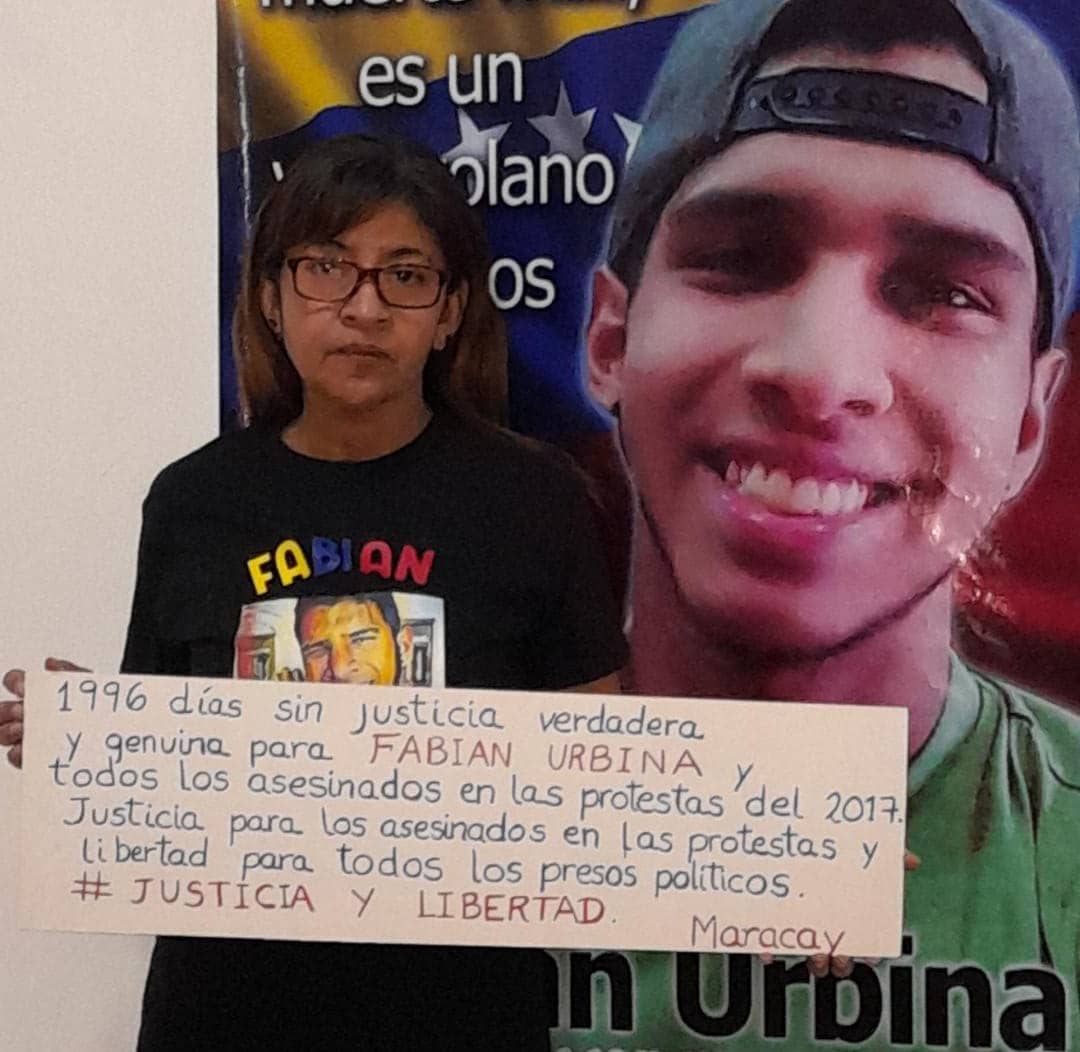 es un
olano
os
FABIAN
1996 días sin justicia verdadera
y genuina para FABIAN URBINA y
todos los asesinados en las protestas del 2017.
Justicia para los asesinados en las protestas y
libertad para todos los presos políticos.
# JUSTICIA Y LIBERTAD.
Maracay
n Urbina